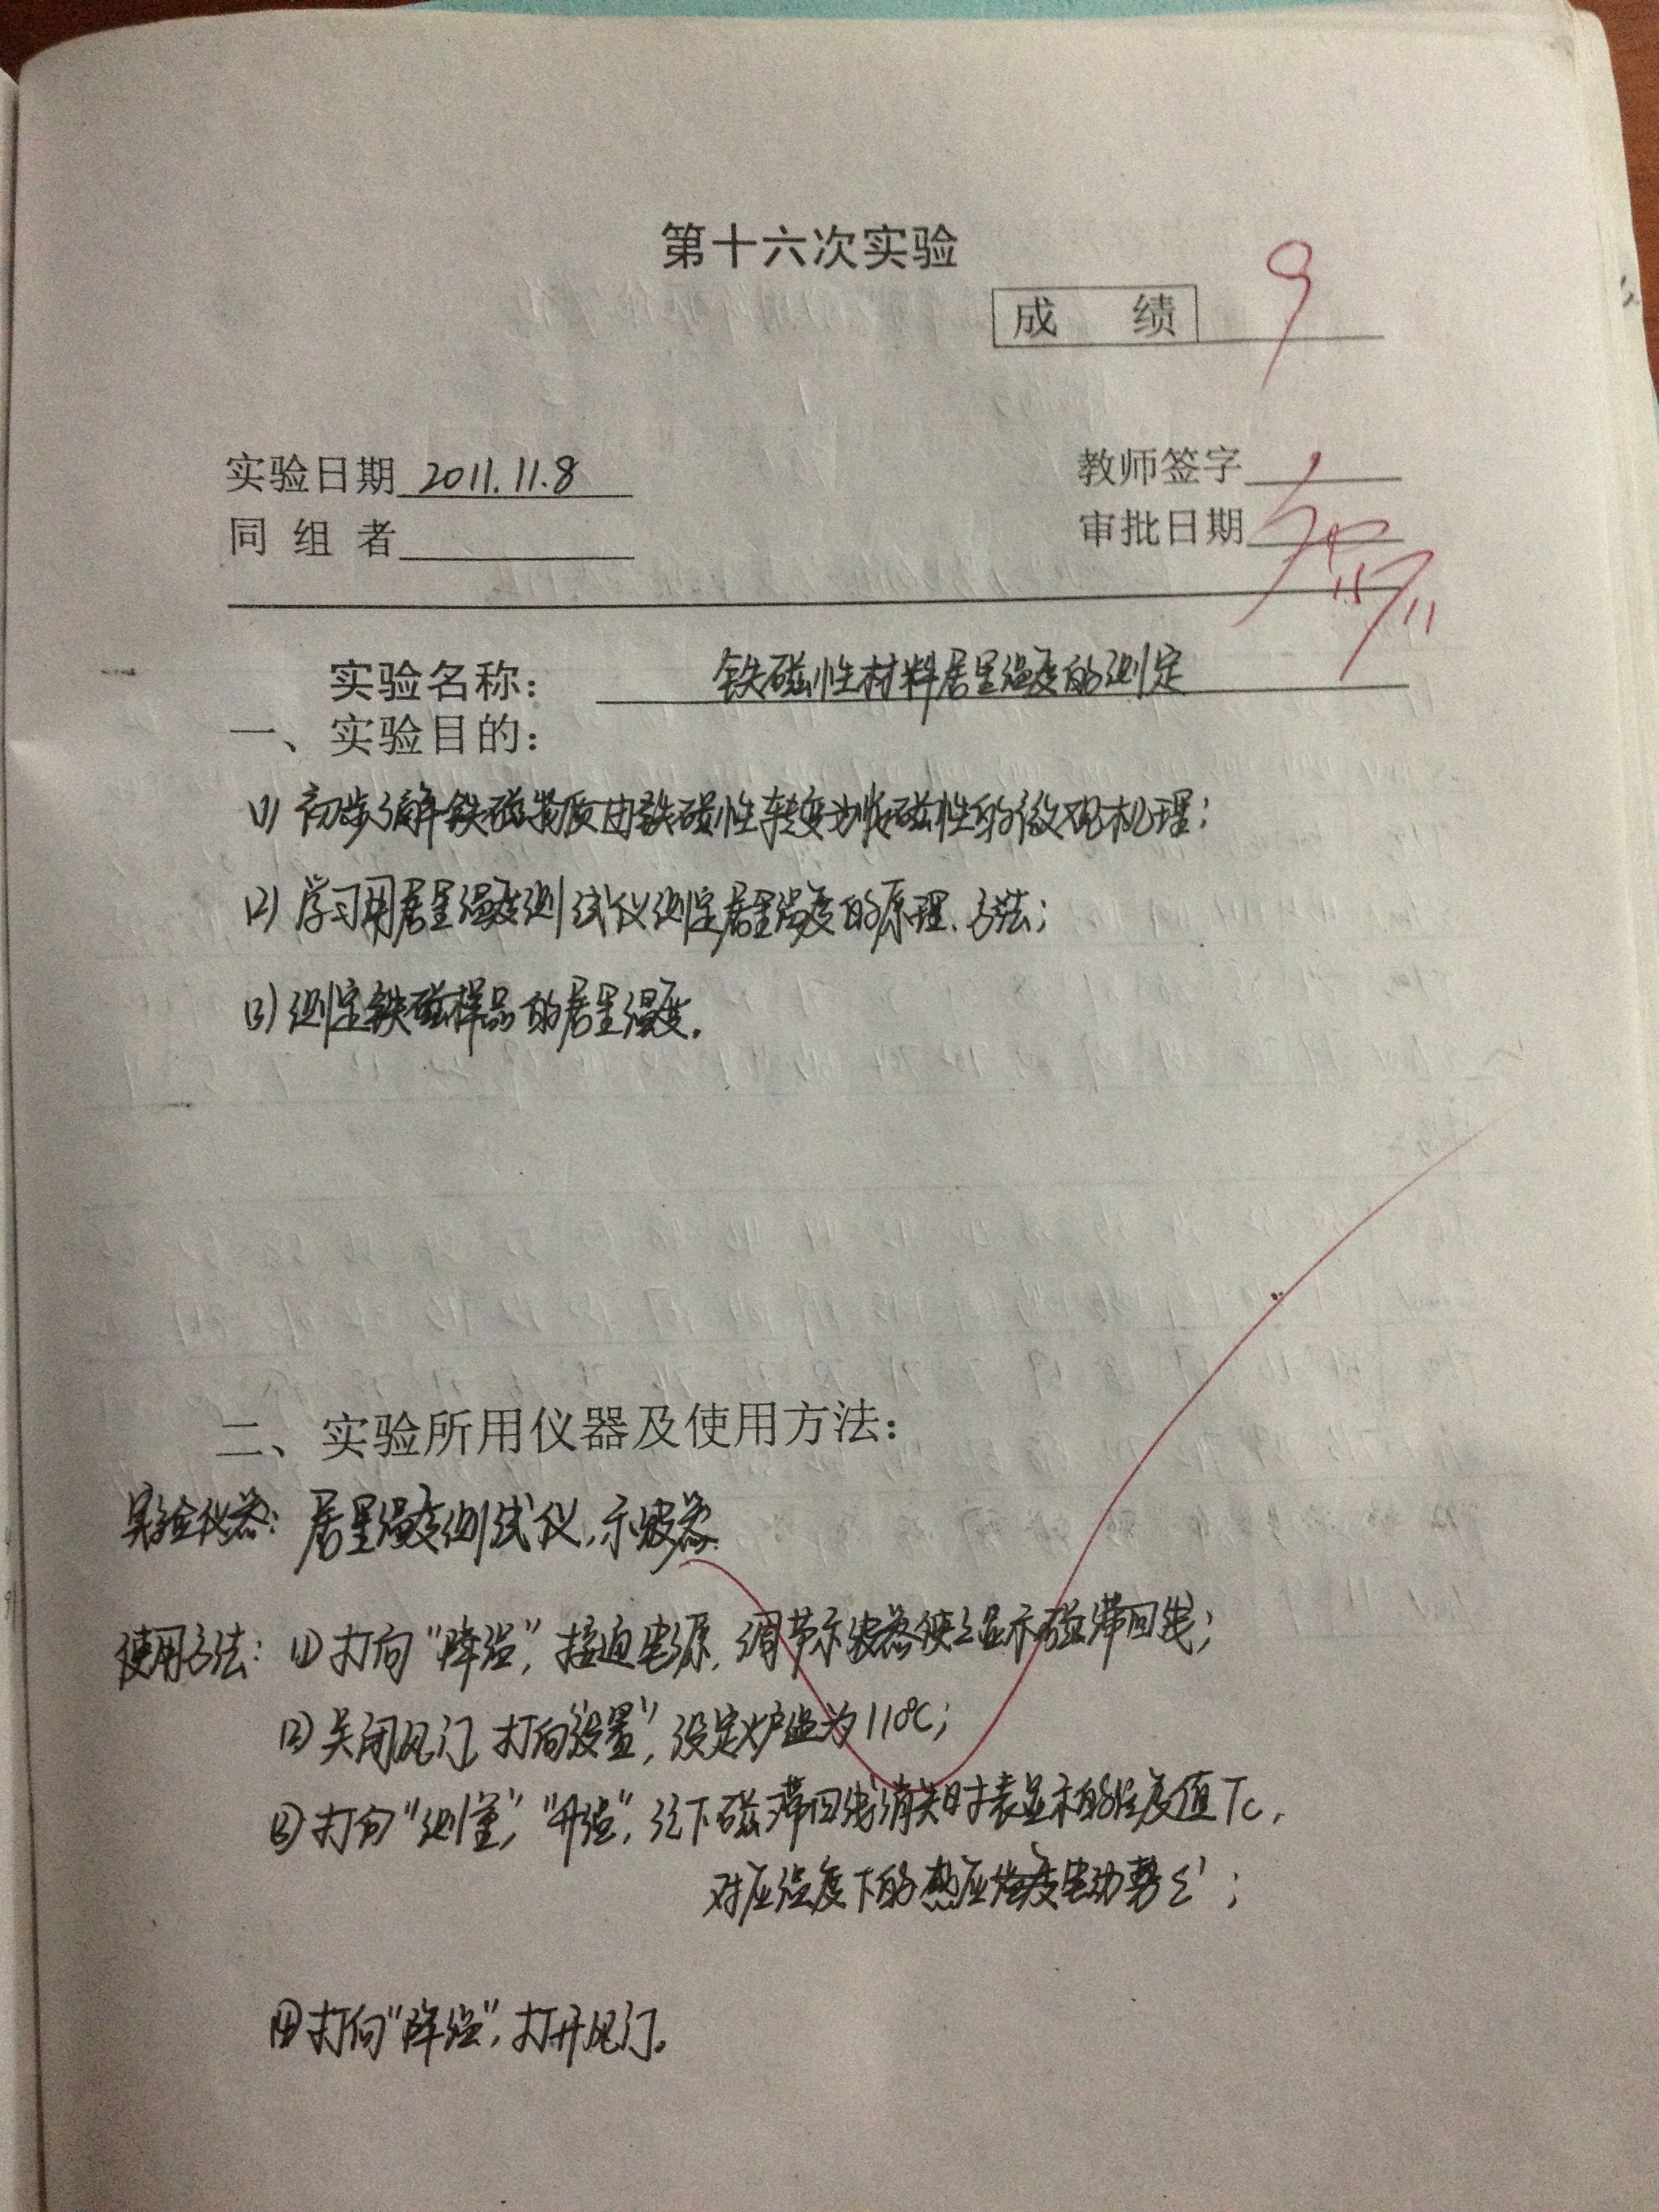 第十六次实验
成 绩 9
实验日期 2011.11.8 教师签字
同 组 者 审批日期
实验名称: 铁磁性材料居里温度的测定
一、实验目的:
(1) 初步了解铁磁物质由铁磁性转变为顺磁性的微观机理;
(2) 学习用居里温度测试仪测定居里温度的原理、方法;
(3) 测定铁磁样品的居里温度.
二、实验所用仪器及使用方法:
实验仪器: 居里温度测试仪、示波器.
使用方法: (1) 打向“降温”, 接通电源, 调节示波器使之显示磁滞回线;
(2) 关闭风门, 打向“设置”, 设定炉温为110℃;
(3) 打向“测量”, “升温”, 记下磁滞回线消失时表显示的温度值Tc,
对应温度下的感应电动势ε';
(4) 打向“降温”, 打开风门。